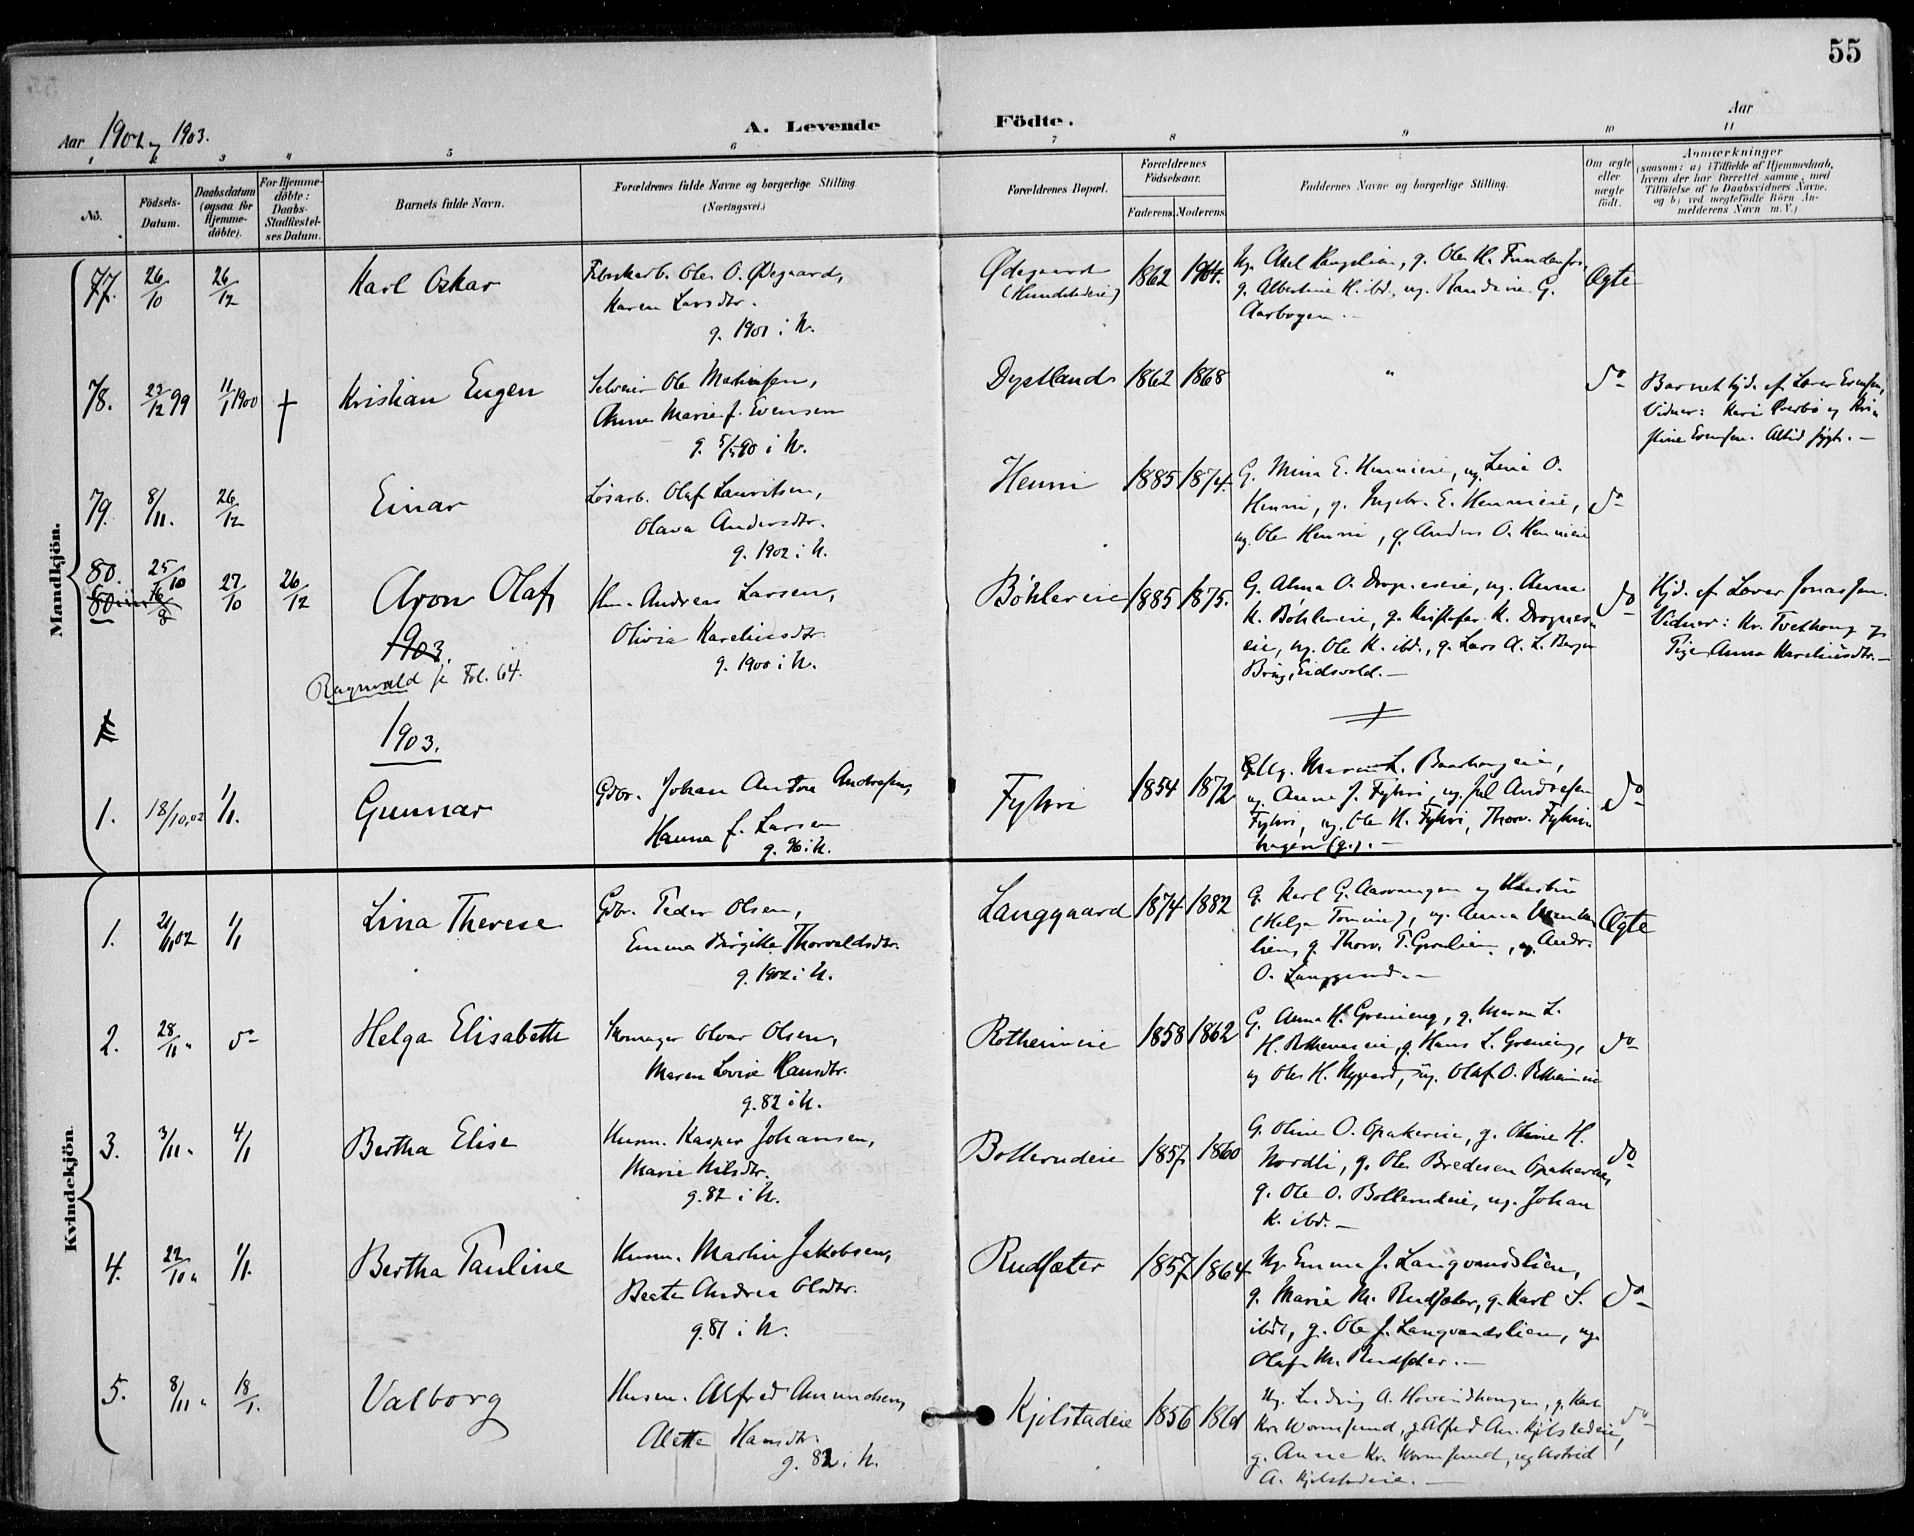 55
Aar 1902 og 1903.
A. Levende Födte.
Aar
1 2 3 4 5 6 7 8 9 10 11
No.
Födsels-Datum.
Daabsdatum (ogsaa for Hjemme-döbte).
For Hjemme-döbte: Daabs-Stadfæstel-ses Datum.
Barnets fulde Navn.
Forældrenes fulde Navne og borgerlige Stilling. (Næringsvei.)
Forældrenes Bopæl.
Forældrenes Födselsaar.
Faderens. Moderens.
Faddernes Navne og borgerlige Stilling.
Om ægte eller uægte födt.
Anmærkninger
(saasom: a) i Tilfælde af Hjemmedaab,
hvem der har forrettet samme, med
Tilföielse af to Daabsvidners Navne.
og b) ved uægtefödte Börn An-
melderens Navn m. V.)
Mandkjön.
77. 26/10 26/12 Karl Oskar
Ole O. Ødegaard,
Karen Larsdtr.
g. 1901 i N.
Ødegaard
1862
g. Albertine K. ibd., ug. Randine G.
Aarbogen.
Ægte
78. 23/12 99 11/1 1900 † Kristian Eugen
Selveier Ole Martinsen,
Anne Marie f. Evensen
g. 5/5 90 i N.
Dystland 1862 1868 " do
Barnet hjd. af Lærer Evensen,
Vidner: Kari Øverbö og Kri-
stine Evensen. Altid sygt.
79. 8/11. 26/12 Einar
Lösarb. Olaf Lauritsen,
Olava Andersdtr.
g. 1902 i N.
Henni 1885 1874.
G. Mina E. Hennieie, ug. Lina O.
Henni, g. Ingebr. E. Hennieie,
ug. Ole Henni, g. Anders O. Hennieie
do
80. 25/10 27/10 26/12 Aron Olaf
Hm. Andreas Larsen,
Olivia Kareliusdtr.
g. 1900 i N.
Böhlereie 1885 1875.
G. Alma O. Drogneseie, ug. Anna
K. Böhlereie, g. Kristofer K. Drognes-
eie, ug. Ole K. ibd., g. Lars A. L. Berger
Brug, Eidsvold.
do
Hjd. af Lærer Jonassen.
Vidner: Kr. Tvethoug og
Pige Anna Kareliusdtr.
1903.
Ragnvald se Fol. 64.
1903.
1. 18/10,02 1/1. Gunnar
Gdbr. Johan Anton Andresen,
Hanna f. Larsen
g. 96 i N.
Fyhri 1854 1872
ug. Anne J. Fyhri, ug. Jul Andresen
Fyhri, ug. Ole H. Fyhri, Thorv. Fyhri-
hagen (g.).
do
Kvindekjön.
1. 21/11,02 1/1 Lina Therese
Gdbr. Peder Olsen,
Emma Birgitte Thorvaldsdtr.
g. 1902 i N.
Langgaard 1874 1882
G. Karl G. Aasvangen og Hustru
(Helga Tomine), ug. Anna
lien, g. Thorv. T. Gronlien, ug. Andr.
O. Langgaard.
Ægte
2. 28/11 " do Helga Elisabeth
Skomager Olvar Olsen,
Maren Lovise Hansdtr.
g. 82 i N.
Rotheimeie 1858 1862
G. Anna H. Grenieng, g. Maren L.
H. Rotheimeie, g. Hans L. Greneng,
ug Ole H. Nygaard, ug. Olaf O. Rotheimeie
do
3. 3/11 " 4/1 Bertha Elise
Husm. Kasper Johansen,
Marie Nilsdtr.
g. 82 i N.
Bollerudeie 1857 1860
G. Oline O. Opakereie, g. Oline H.
Nordli, g. Ole Bredesen Opakereie,
g. Ole O. Bollerudeie, ug. Johan
K. ibd.
do
4. 22/11 " 1/1. Bertha Pauline
Husm. Martin Jakobsen,
Beate Andrea Olsdtr.
g. 81 i N.
Rudsæter 1857 1864
Ug. Emma J. Langvandslien,
g. Marie M. Rudsæter, g. Karl S.
ibd., g. Ole J. Langvandslien, ug.
Olaf M. Rudsæter.
do
5. 8/11 " 18/1. Valborg
Husm. Alfred Amundsen,
Alette Hansdtr.
g. 82 i N.
Kjölstadeie 1856 1861
Ug. Ludvig A. Hovindhougen, g. Karl
Kr. Wormsund, g. Alfred Am. Kjölstadeie,
g. Anne Kr. Wormsund, ug Astrid
A. Kjölstadeie.
do